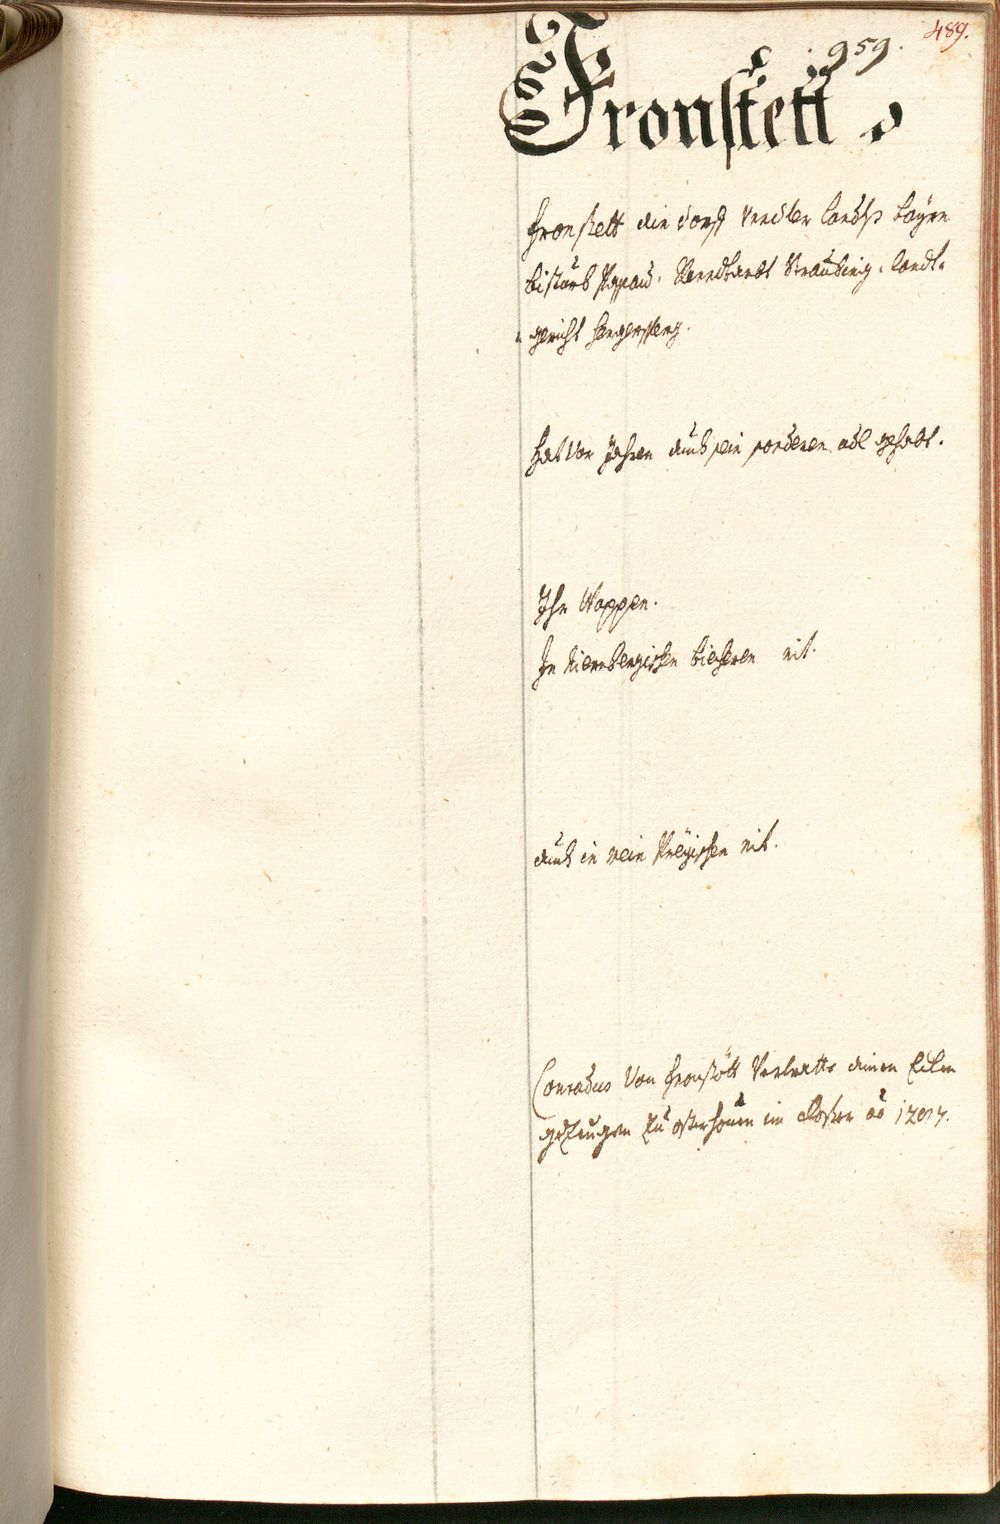 489.
959.
Fronstett
Fronstett ein dorff Unnder landts Bayrn
bistumb Passau, Renndtambt Straubing, landt-
gericht Hengersperg.
Hat vor Jahren auch sein sonderen adl gehabt.
Ihr Wappen.
In Niernbergischen biecheren nit.
auch in mein Preyischen nit.
Conradus von Fronstött Vertratte einen
gezeugen zu osterhouen im Closter ao